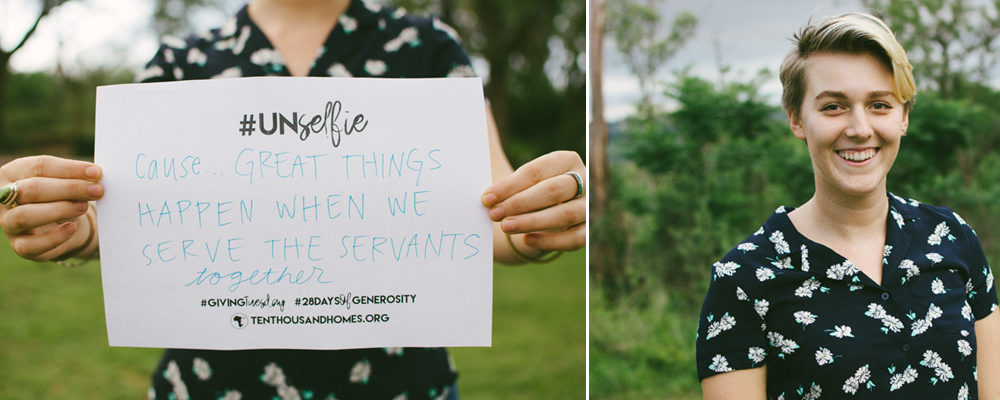 #UNselfie
Cause... GREAT THINGS
HAPPEN WHEN WE
SERVE THE SERVANTS
together
#GIVINGTuesday #28DAYSOfGENEROSITY
TENTHOUSANDHOMES.ORG